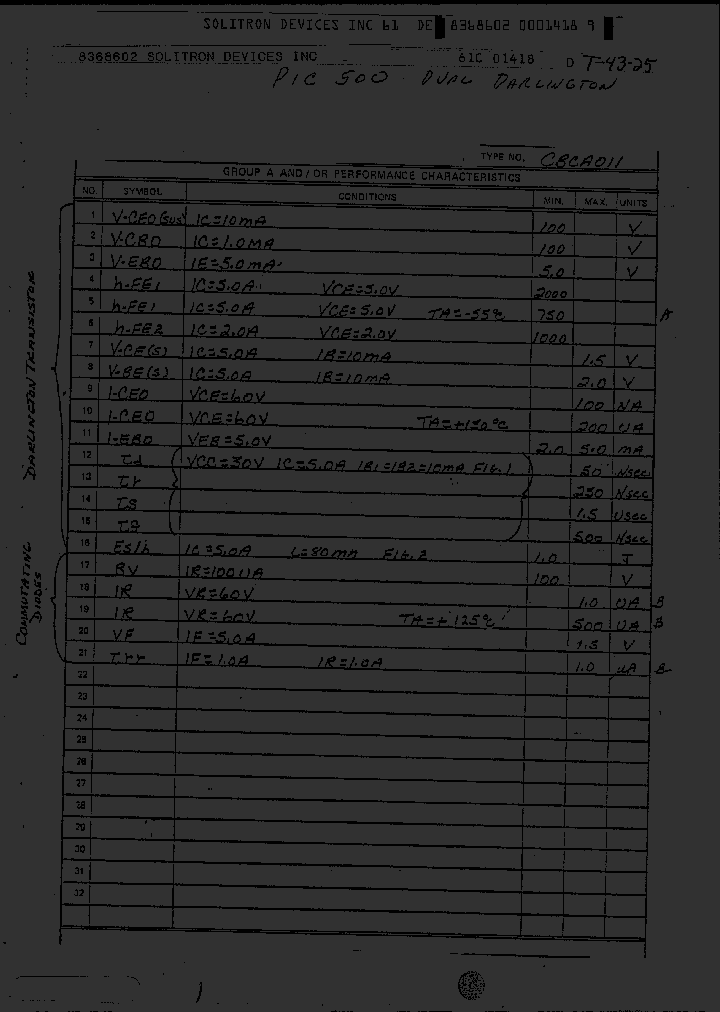 SOLITRON DEVICES INC 61 DE 8368602 0001418 9
8368602 SOLITRON DEVICES INC 61C 01418 D T-43-25
PIC 500 DUAL DARLINGTON
TYPE NO. CBCA011
GROUP A AND/OR PERFORMANCE CHARACTERISTICS
NO. SYMBOL CONDITIONS MIN. MAX. UNITS
DARLINGTON TRANSISTOR
1 V-CEO(SUS) IC=10mA 100 V
2 V-CBO IC=1.0mA 100 V
3 V-EBO IE=5.0mA 5.0 V
4 h-FE1 IC=5.0A VCE=5.0V 2000
5 h-FE1 IC=5.0A VCE=5.0V TA=-55°C 750 A
6 h-FE2 IC=2.0A VCE=2.0V 1000
7 V-CE(S) IC=5.0A IB=10mA 1.5 V
8 V-BE(S) IC=5.0A IB=10mA 2.0 V
9 I-CEO VCE=60V 100 NA
10 I-CEO VCE=60V TA=+150°C 200 UA
11 I-EBO VEB=5.0V 2.0 5.0 mA
12 td VCC=30V IC=5.0A IB1=IB2=10mA FIG.1 50 Nsec
13 tr 250 Nsec
14 ts 1.5 Usec
15 500 Nsec
16 Es/b IC=5.0A L=80mA FIG.2 1.0 J
COMMUTATING DIODES
17 BV IR=100UA 100 V
18 IR VR=60V 1.0 UA B
19 IR VR=60V TA=+125°C 500 UA B
20 VF IF=5.0A 1.5 V
21 trr IF=1.0A IR=1.0A 1.0 uA B
22
23
24
25
26
27
28
29
30
31
32